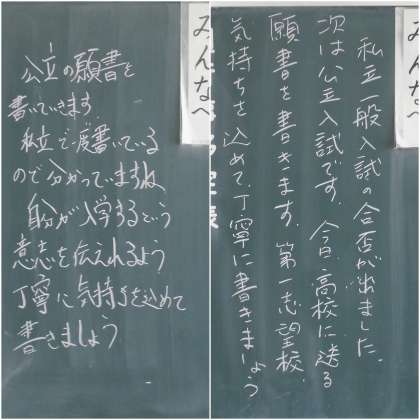 公立の願書を
書いていきます
私立で一度書いている
ので分かっていますね
自分が入学するという
意志を伝えれるよう
丁寧に気持ちを込めて
書きましょう
みんなへ
私立一般入試の合否が出ました。
次は公立入試です。今日、高校に送る
願書を書きます。第一志望校。
気持ちを込めて、丁寧に書きましょう
みんなへ